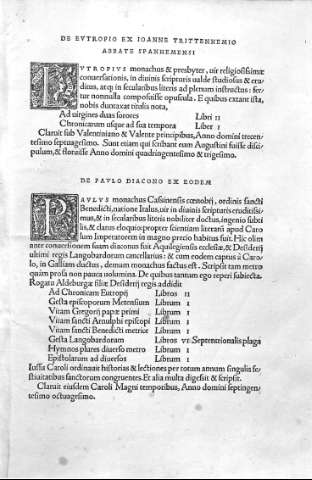 DE EVTROPIO EX IOANNE TRITTENHEMIO
ABBATE SPANHEMENSI
EVTROPIVS monachus & presbyter, uir religiosissimæ
conuersationis, in diuinis scripturis ualde studiosus & eru-
ditus, atq; in secularibus ad plenum instructus: fer-
tur nonnulla composuisse opuscula. E quibus extant ista,
nobis duntaxat titulis nota,
Ad uirgines duas sorores Libri II
Chronicarum usque ad sua tempora Liber I
Claruit sub Valentiniano & Valente principibus, Anno domini trecen-
tesimo septuagesimo. Sunt etiam qui scribant eum Augustini fuisse disci-
pulum, & floruisse Anno domini quadringentesimo & trigesimo.
DE PAVLO DIACONO EX EODEM
PAVLVS monachus Cassinensis cœnobij, ordinis sancti
Benedicti, natione Italus, uir in diuinis scripturis eruditissi-
mus, & in secularibus literis nobiliter doctus, ingenio subti
lis, & clarus eloquio: propter scientiam literarū apud Caro
lum Imperatorem in magno precio habitus fuit. Hic olim
ante conuersionem suam diaconus fuit Aquilegiensis ecclesiæ, & Desiderij
ultimi regis Langobardorum cancellarius: & cum eodem captus à Caro-
lo, in Gallias ductus, demum monachus factus est. Scripsit tam metro
quàm prosa non pauca uolumina. De quibus tamen ego reperi subiecta.
Rogatu Aldeburgæ filiæ Desiderij regis addidit
Ad Chronicam Eutropij Libros II
Gesta episcoporum Metensium Librum I
Vitam Gregorij papæ primi Librum I
Vitam sancti Arnulphi episcopi Librum I
Vitam sancti Benedicti metrice Librum I
Gesta Langobardorum Libros VI Septentrionalis plaga
Hymnos plures diuerso metro Librum I
Epistolarum ad diuersos Librum I
Iussu Caroli ordinauit historias & lectiones per totum annum singulis fe-
stiuitatibus sanctorum congruentes. Et alia multa digessit & scripsit.
Claruit eiusdem Caroli Magni temporibus, Anno domini septingen-
tesimo octuagesimo.